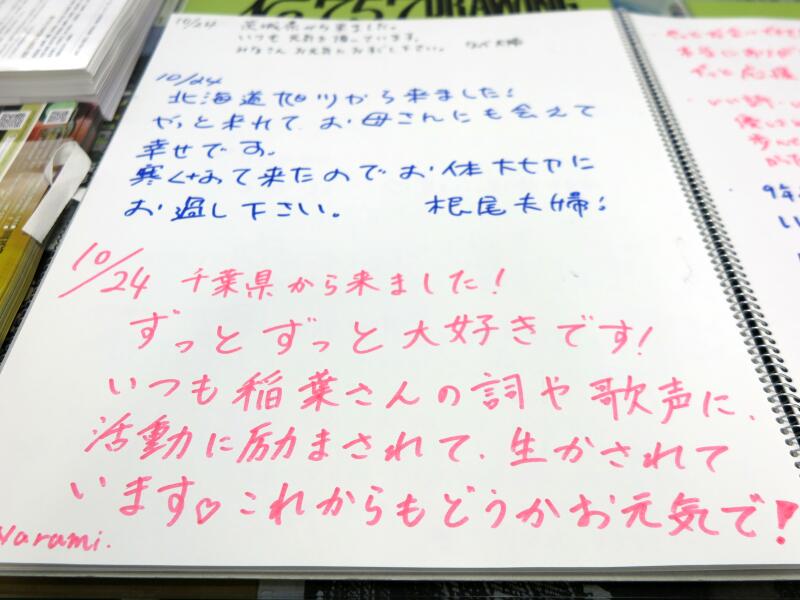 DRAWING
10/24 茨城県から来ました。
いつも元気を頂いています。
みなさんお元気でおすごし下さい。
10/24
北海道旭川から来ました!
やっと来れて、お母さんにも会えて
幸せです。
寒くなって来たのでお体大切に
お過し下さい。 根尾夫婦!
10/24 千葉県から来ました!
ずっとずっと大好きです!
いつも稲葉さんの詞や歌声に、
活動に励まされて、生かされて
います♡これからもどうかお元気で!
Narami.